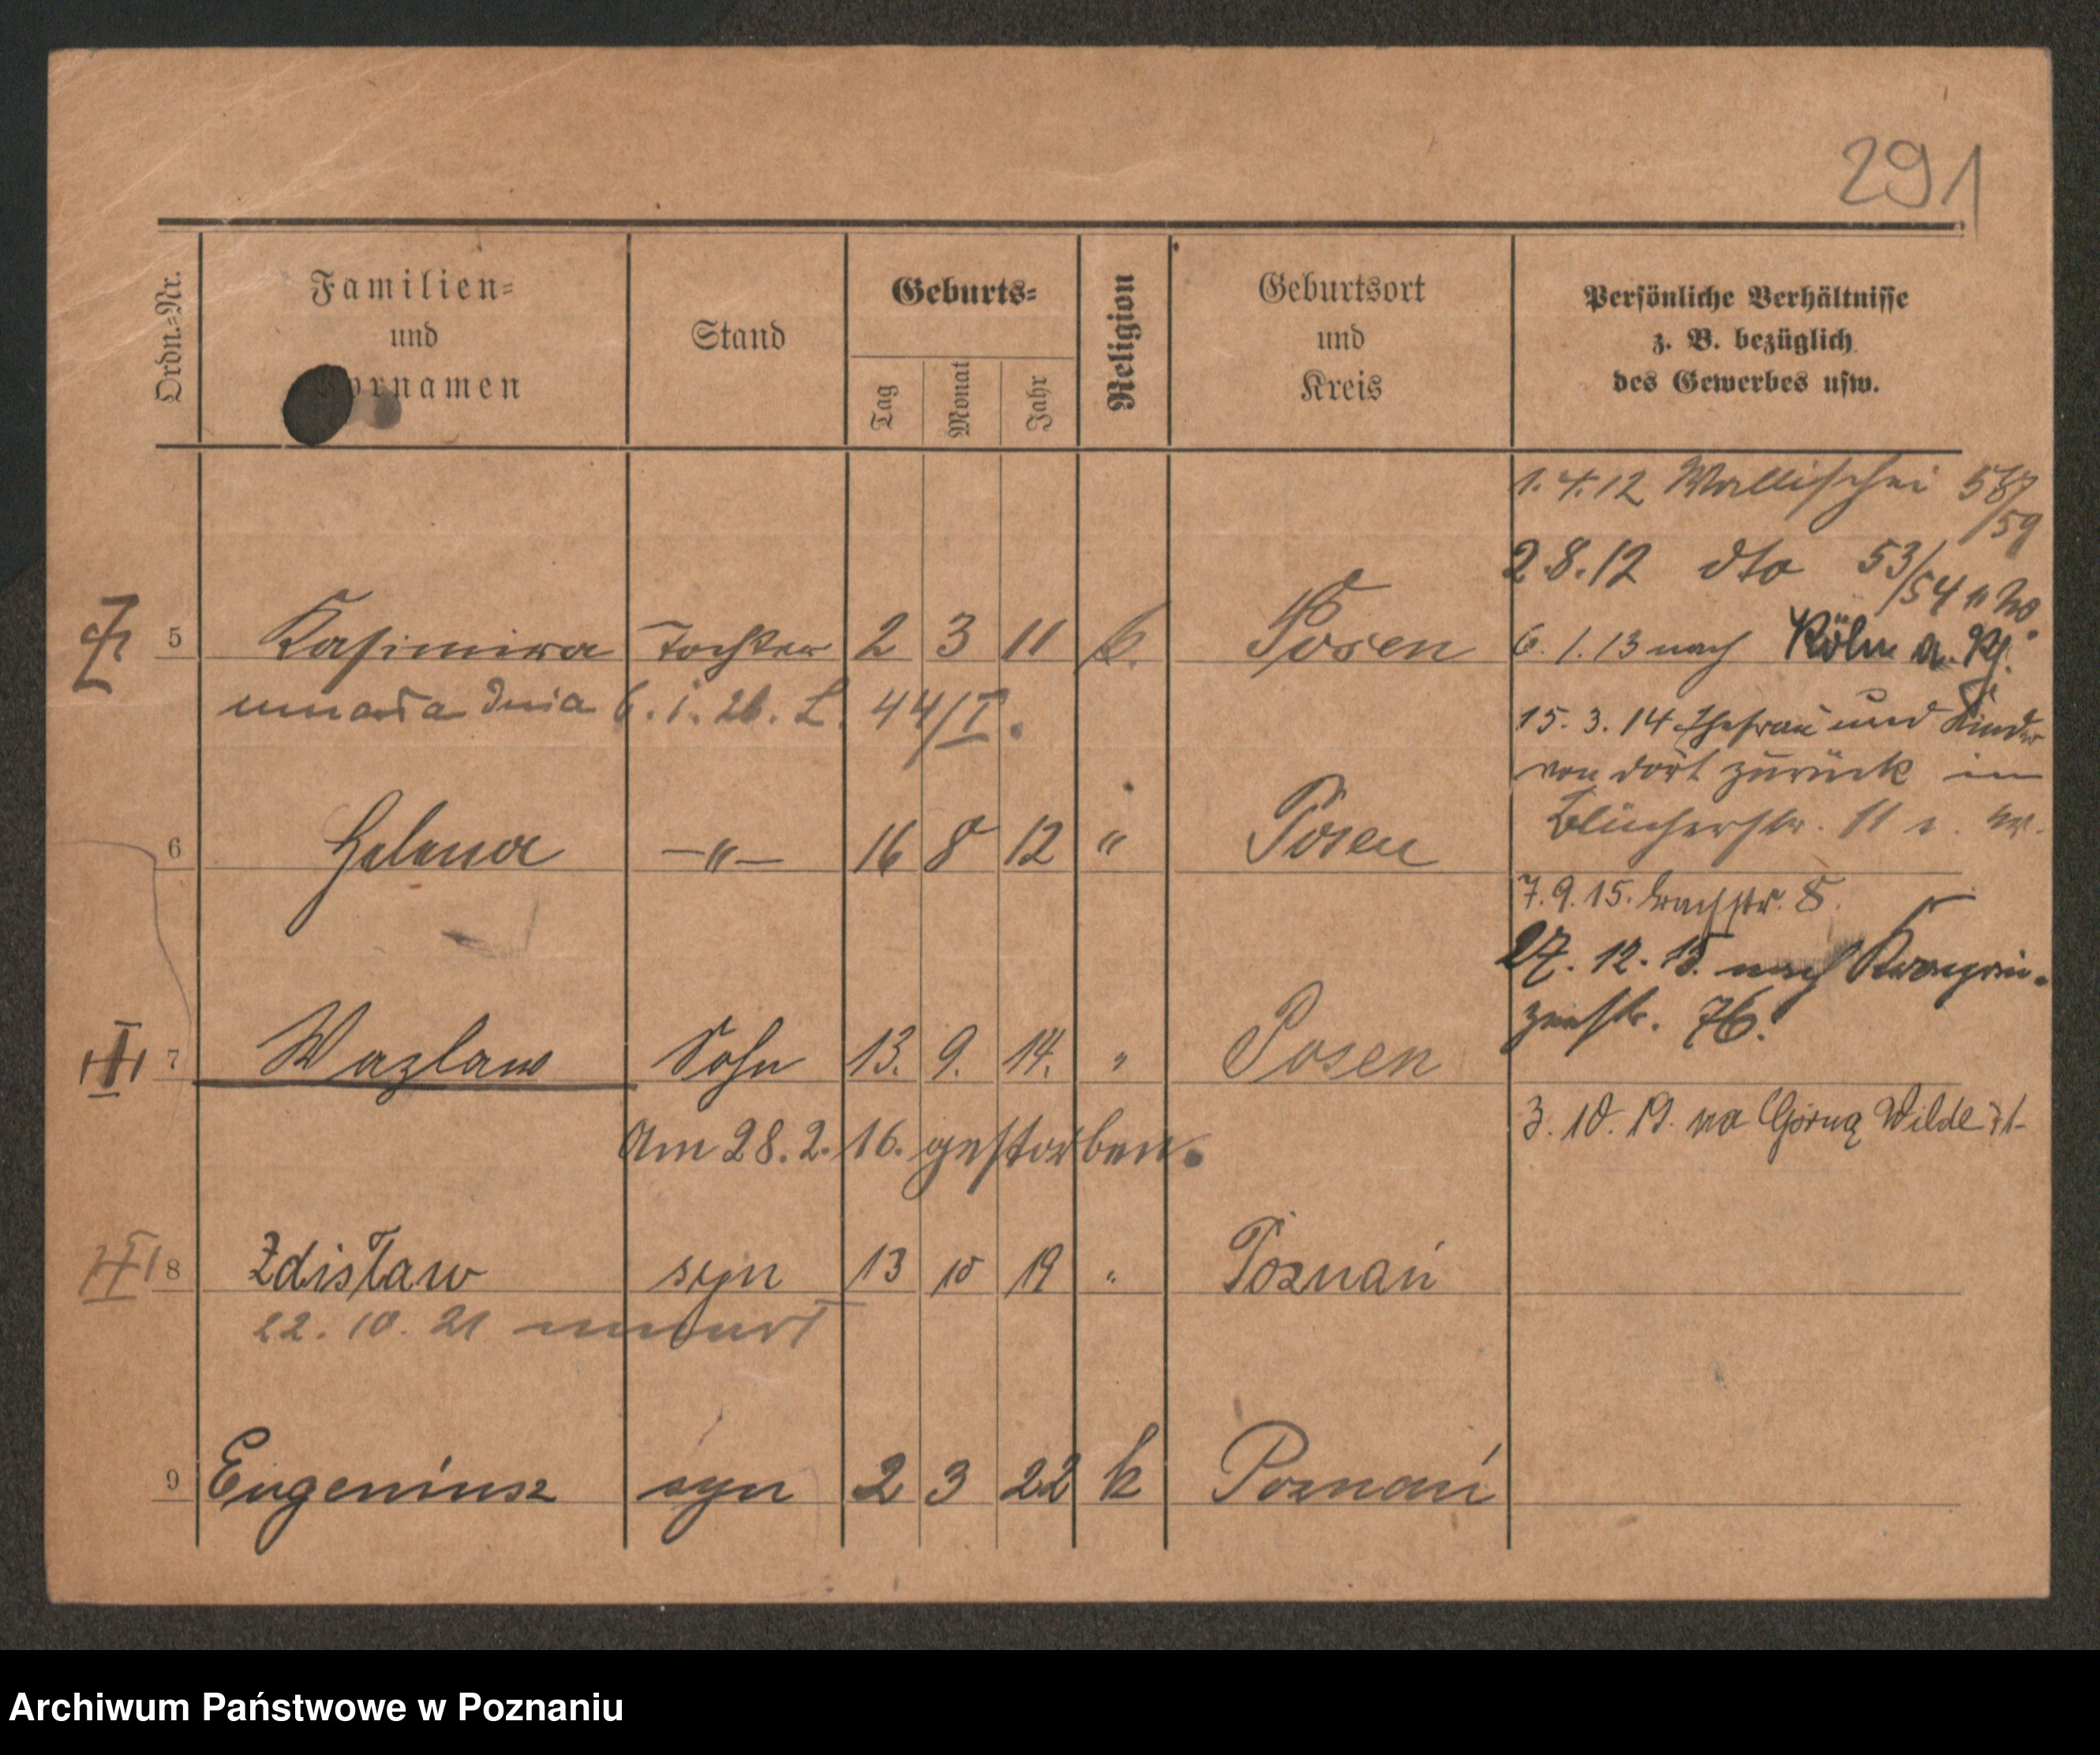 291
Ordn.-Nr.
Familien-
und
Vornamen
Stand
Geburts-
Tag
Monat
Jahr
Religion
Geburtsort
und
Kreis
Persönliche Verhältnisse
z. B. bezüglich
des Gewerbes usw.
5 Kasimira Tochter 2 3 11 k. Posen
umarła dnia 6. 1. 26. L. 44/I.
6 Helena —"— 16 8 12 " Posen
7 Wazlaw Sohn 13. 9. 14. " Posen
Am 28. 2. 16. gestorben.
8 Zdisław syn 13 10 19 " Poznań
22. 10. 21 umarł
9 Eugeniusz syn 2 3 22 k Poznań
1. 4. 12 Wallischei 58/
/59
2. 8. 12 dto 53/
/54
6. 1. 13 nach Köln a. Rh.
15. 3. 14 Ehefrau und Kinder
von dort zurück in
Blücherstr. 11
7. 9. 15. Bachstr. 8.
27. 12. 15. nach Kronprin-
zenstr. 76.
3. 10. 19. na Górną Wildę 71
Archiwum Państwowe w Poznaniu